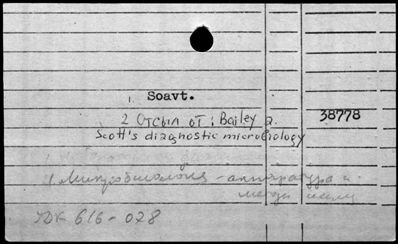 1. Soavt.
2 Отсыл от: Bailey a. 38778
Scott's diagnostic microbiology
1. Микробиология - аппаратура и
методы
УДК 616-078